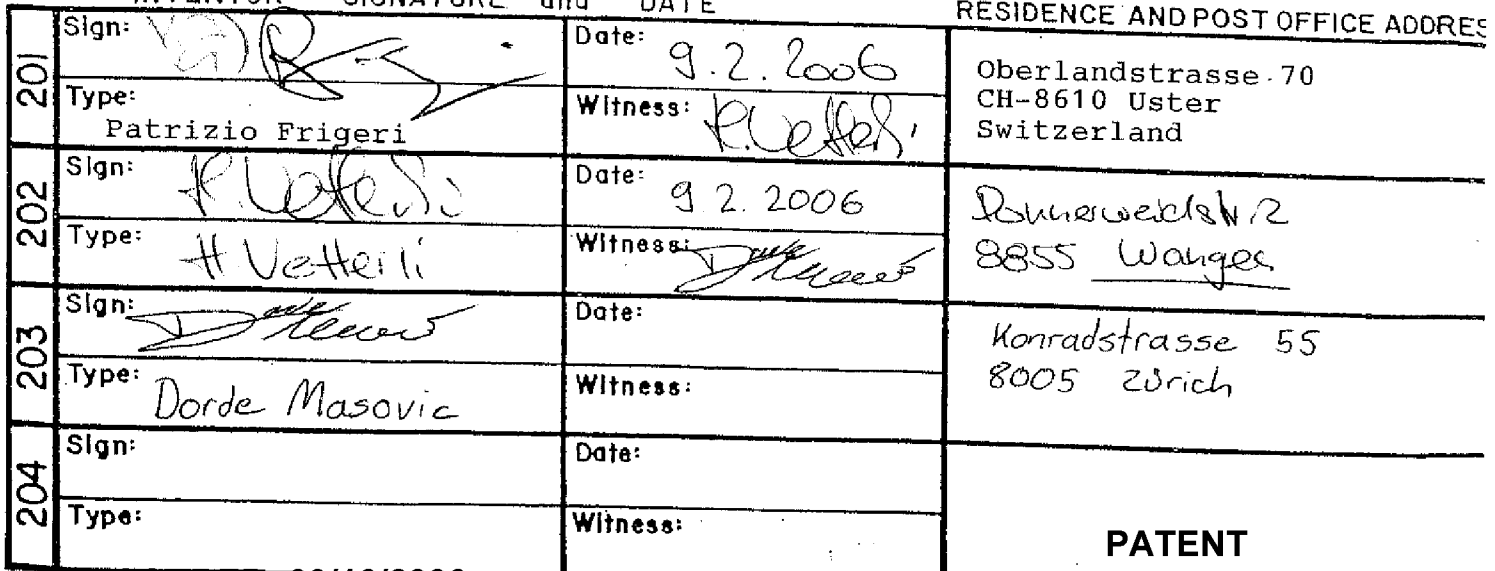 SIGNATURE and DATE RESIDENCE AND POST OFFICE ADDRES
201
Sign:
Date: 9.2.2006
Oberlandstrasse 70
CH-8610 Uster
Switzerland
Type: Patrizio Frigeri
Witness: H.Vetterli
202
Sign: H.Vetterli
Date: 9 2. 2006
8855 Wangen
Type: H Vetterli
Witness:
203
Sign:
Date:
Konradstrasse 55
8005 Zürich
Type: Dorde Masovic
Witness:
204
Sign:
Date:
Type:
Witness:
PATENT